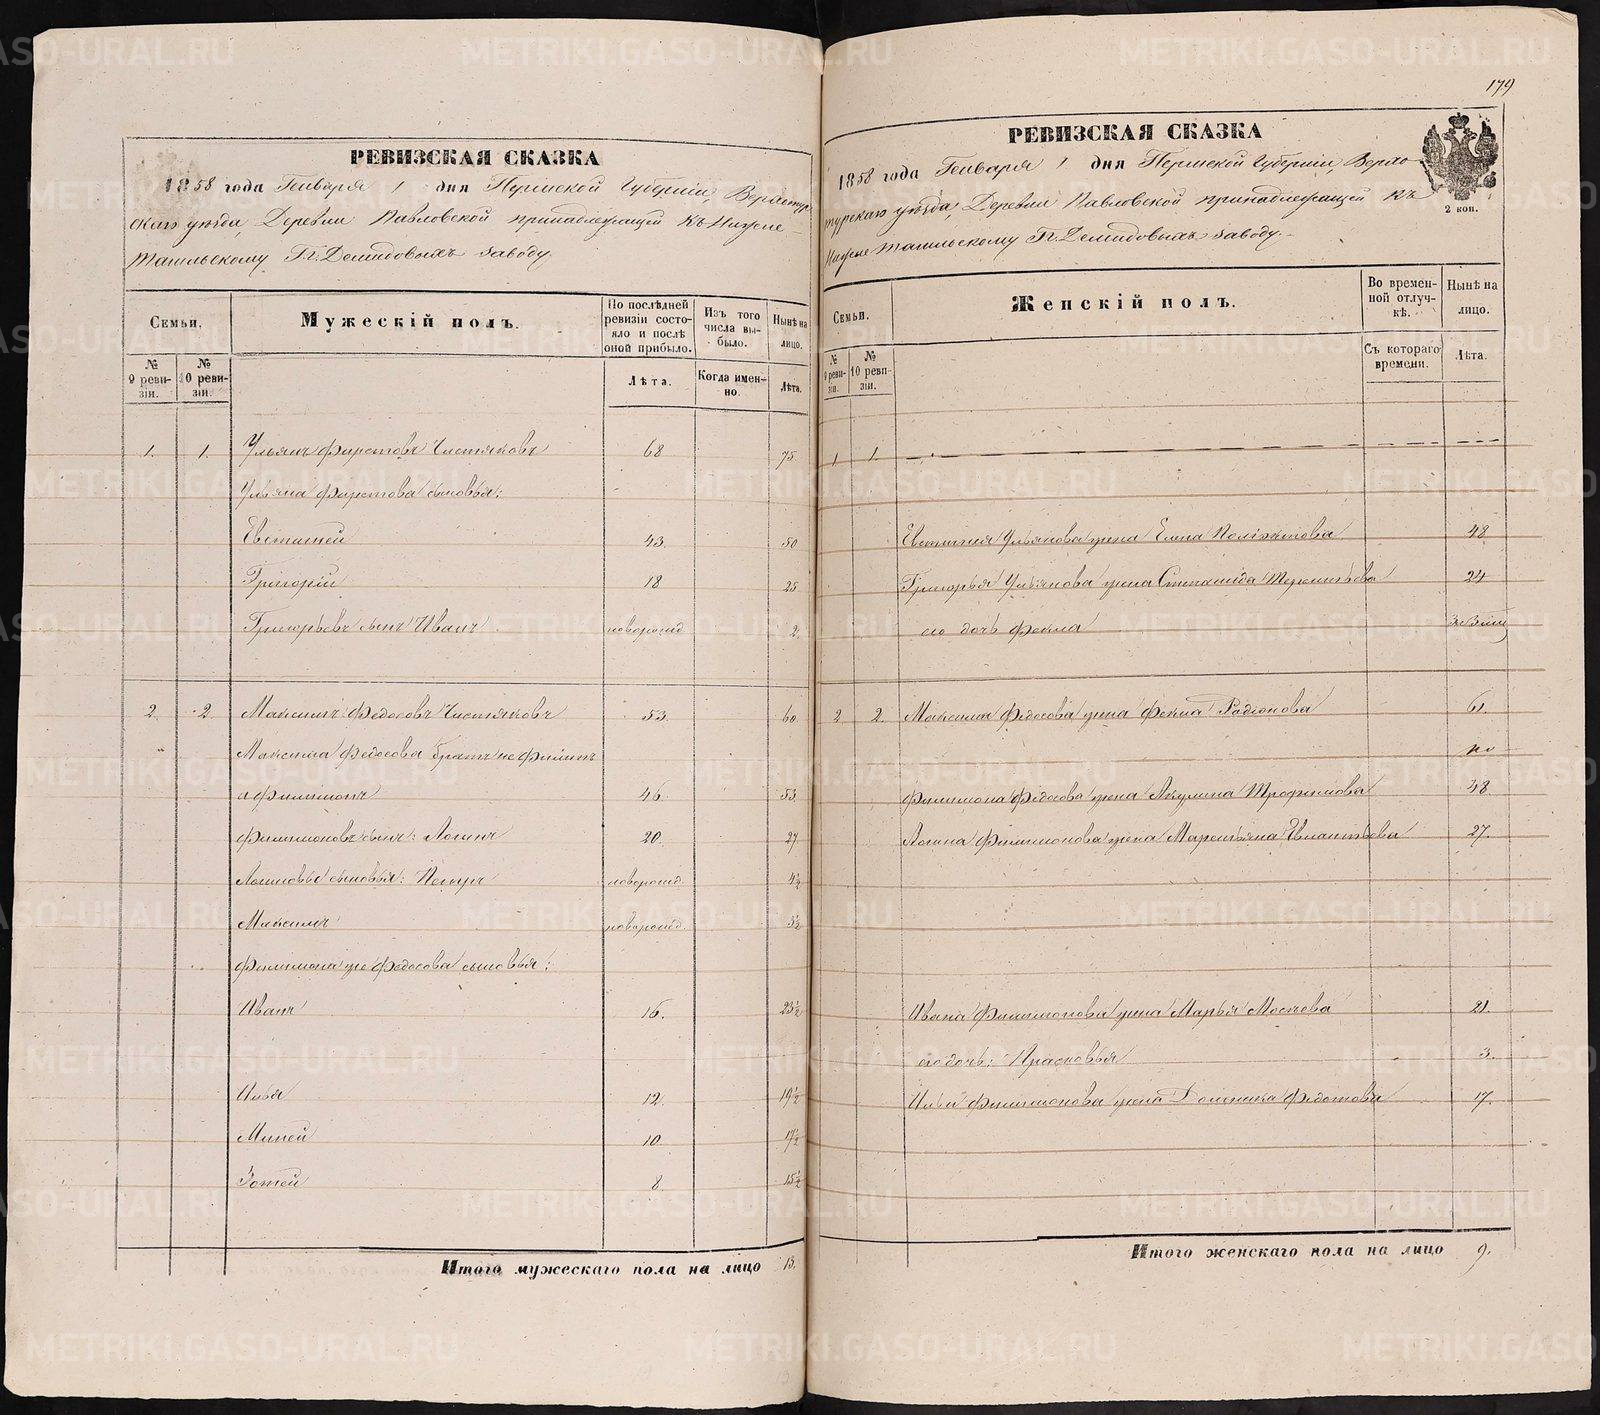 РЕВИЗСКАЯ СКАЗКА
1858 года Генваря 1 дня Пермской Губернии, Верхотур-
скаго уѣзда, Деревни Павловской принадлежащей къ Нижне-
тагильскому Гг. Демидовыхъ заводу.
Семьи.
Мужескій полъ.
По послѣдней ревизіи состояло и послѣ оной прибыло.
Изъ того числа выбыло.
Нынѣ на лицо.
№ 9 ревизіи.
№ 10 ревизіи.
Лѣта.
Когда именно.
Лѣта.
1. 1. Ульянъ Фирстовъ Чистяковъ 68 75
Ульяна Фирстова сыновья:
Евстигней 43. 50
Григорій 18 25
Григорьевъ сынъ Иванъ новорожд 2.
2. 2. Максимъ Федосовъ Чистяковъ 53. 60
Максима Федосова братъ
Филимонъ 46. 53.
Филимоновъ сынъ: Логинъ 20. 27
Логиновы сыновья: Петръ новорожд. 4½
Максимъ новорожд. 3½
Филимона же Федосова сыновья:
Иванъ 16. 23½
Илья 12. 19½
Миней 10. 17½
Зотей 8 15½
Итого мужескаго пола на лицо 13.
179
РЕВИЗСКАЯ СКАЗКА
1858 года Генваря 1 дня Пермской Губерніи, Верхо-
турскаго уѣзда, Деревни Павловской принадлежащей къ
Нижне Тагильскому Гг. Демидовыхъ заводу.
2 коп.
Семьи.
Женскій полъ.
Во временной отлучкѣ.
Нынѣ на лицо.
№ 9 ревизіи.
№ 10 ревизіи.
Съ котораго времени.
Лѣта.
1 1
Евстигнея Ульянова жена Елена 48
Григорья Ульянова жена Степанида Терентьева 24
его дочь Фекла
2 2. Максима Федосова жена Фекла Радионова 61.
Филимона Федосова жена Акулина Трофимова 48
Логина Филимонова жена Маремьяна 27.
Ивана Филимонова жена Марья 21.
его дочь: Прасковья 3.
Ильи Филимонова жена Федотова 17.
Итого женскаго пола на лицо 9.
METRIKI.GASO-URAL.RU